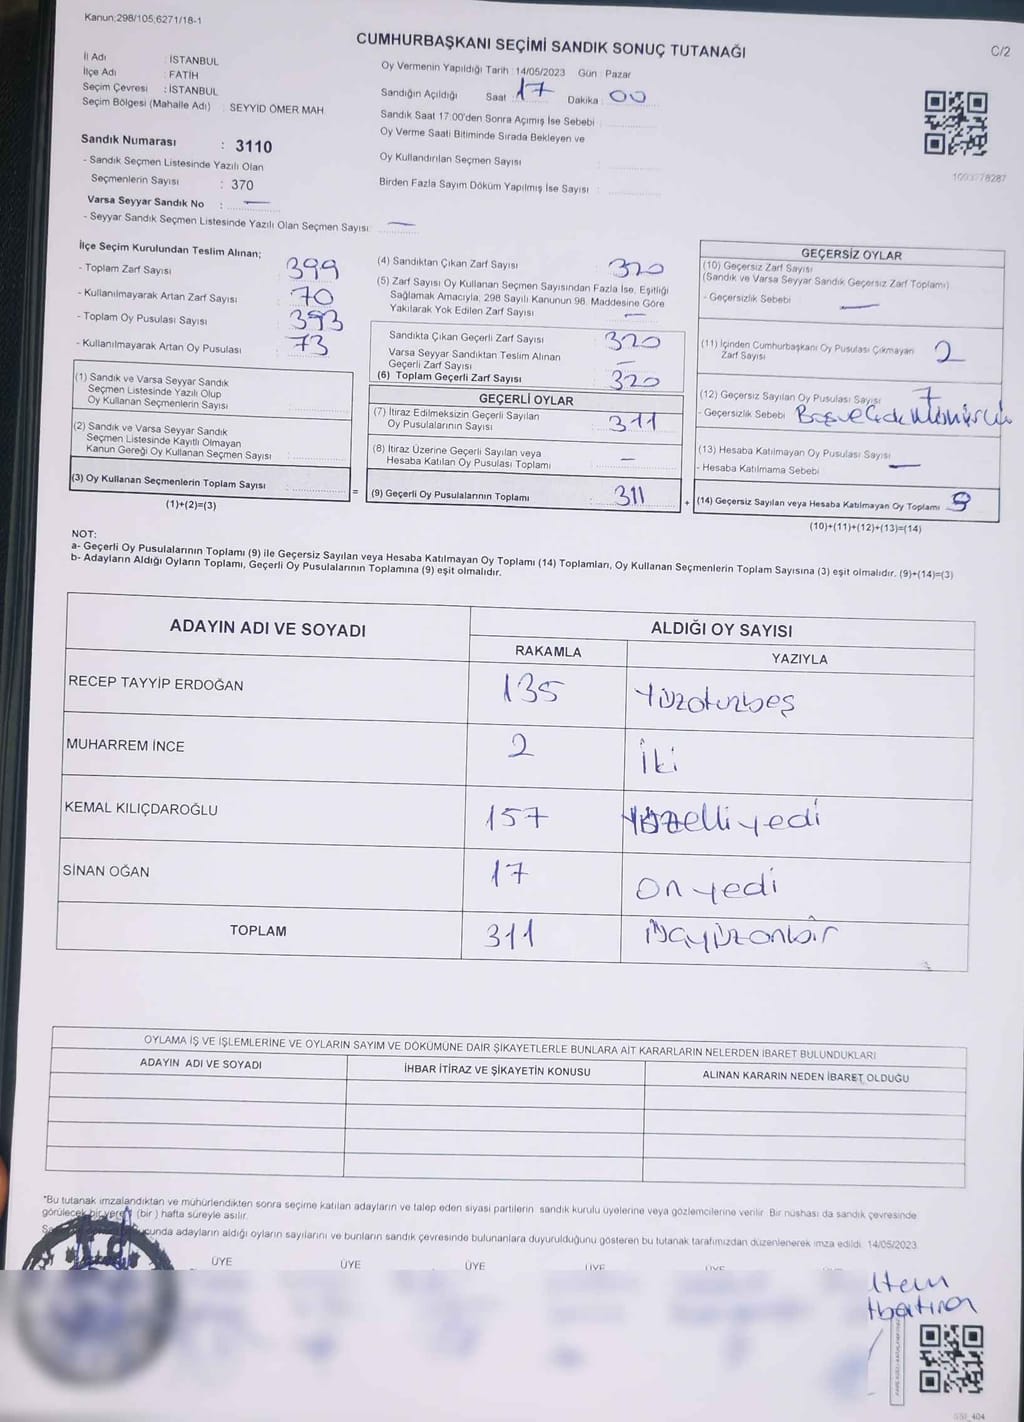 Kanun:298/105,6271/18-1
CUMHURBAŞKANI SEÇİMİ SANDIK SONUÇ TUTANAĞI
C/2
İl Adı : İSTANBUL
İlçe Adı : FATİH
Seçim Çevresi : İSTANBUL
Seçim Bölgesi (Mahalle Adı) : SEYYİD ÖMER MAH
Sandık Numarası : 3110
- Sandık Seçmen Listesinde Yazılı Olan
Seçmenlerin Sayısı : 370
Varsa Seyyar Sandık No : —
- Seyyar Sandık Seçmen Listesinde Yazılı Olan Seçmen Sayısı: —
Oy Vermenin Yapıldığı Tarih : 14/05/2023 Gün : Pazar
Sandığın Açıldığı Saat : 17 Dakika : 00
Sandık Saat 17:00'den Sonra Açılmış İse Sebebi :
Oy Verme Saati Bitiminde Sırada Bekleyen ve
Oy Kullandırılan Seçmen Sayısı :
Birden Fazla Sayım Döküm Yapılmış İse Sayısı :
İlçe Seçim Kurulundan Teslim Alınan;
- Toplam Zarf Sayısı : 399
- Kullanılmayarak Artan Zarf Sayısı : 70
- Toplam Oy Pusulası Sayısı : 393
- Kullanılmayarak Artan Oy Pusulası : 73
(1) Sandık ve Varsa Seyyar Sandık
Seçmen Listesinde Yazılı Olup
Oy Kullanan Seçmenlerin Sayısı :
(2) Sandık ve Varsa Seyyar Sandık
Seçmen Listesinde Kayıtlı Olmayan
Kanun Gereği Oy Kullanan Seçmen Sayısı :
(3) Oy Kullanan Seçmenlerin Toplam Sayısı :
(1)+(2)=(3)
(4) Sandıktan Çıkan Zarf Sayısı : 320
(5) Zarf Sayısı Oy Kullanan Seçmen Sayısından Fazla İse, Eşitliği
Sağlamak Amacıyla, 298 Sayılı Kanunun 98. Maddesine Göre
Yakılarak Yok Edilen Zarf Sayısı : —
Sandıkta Çıkan Geçerli Zarf Sayısı : 320
Varsa Seyyar Sandıktan Teslim Alınan
Geçerli Zarf Sayısı : —
(6) Toplam Geçerli Zarf Sayısı : 320
GEÇERLİ OYLAR
(7) İtiraz Edilmeksizin Geçerli Sayılan
Oy Pusulalarının Sayısı : 311
(8) İtiraz Üzerine Geçerli Sayılan veya
Hesaba Katılan Oy Pusulası Toplamı : —
= (9) Geçerli Oy Pusulalarının Toplamı : 311
GEÇERSİZ OYLAR
(10) Geçersiz Zarf Sayısı
(Sandık ve Varsa Seyyar Sandık Geçersiz Zarf Toplamı)
- Geçersizlik Sebebi —
(11) İçinden Cumhurbaşkanı Oy Pusulası Çıkmayan
Zarf Sayısı 2
(12) Geçersiz Sayılan Oy Pusulası Sayısı 7
- Geçersizlik Sebebi
(13) Hesaba Katılmayan Oy Pusulası Sayısı —
- Hesaba Katılmama Sebebi
+ (14) Geçersiz Sayılan veya Hesaba Katılmayan Oy Toplamı : 9
(10)+(11)+(12)+(13)=(14)
1003778287
NOT:
a- Geçerli Oy Pusulalarının Toplamı (9) ile Geçersiz Sayılan veya Hesaba Katılmayan Oy Toplamı (14) Toplamları, Oy Kullanan Seçmenlerin Toplam Sayısına (3) eşit olmalıdır. (9)+(14)=(3)
b- Adayların Aldığı Oyların Toplamı, Geçerli Oy Pusulalarının Toplamına (9) eşit olmalıdır.
ADAYIN ADI VE SOYADI
ALDIĞI OY SAYISI
RAKAMLA YAZIYLA
RECEP TAYYİP ERDOĞAN 135 Yüzotuzbeş
MUHARREM İNCE 2 İki
KEMAL KILIÇDAROĞLU 157 Yüzelliyedi
SİNAN OĞAN 17 Onyedi
TOPLAM 311 Üçyüzonbir
OYLAMA İŞ VE İŞLEMLERİNE VE OYLARIN SAYIM VE DÖKÜMÜNE DAİR ŞİKAYETLERLE BUNLARA AİT KARARLARIN NELERDEN İBARET BULUNDUKLARI
ADAYIN ADI VE SOYADI İHBAR İTİRAZ VE ŞİKAYETİN KONUSU ALINAN KARARIN NEDEN İBARET OLDUĞU
*Bu tutanak imzalandıktan ve mühürlendikten sonra seçime katılan adayların ve talep eden siyasi partilerin sandık kurulu üyelerine veya gözlemcilerine verilir. Bir nüshası da sandık çevresinde
görülecek bir yere 1 (bir) hafta süreyle asılır.
ucunda adayların aldığı oyların sayılarını ve bunların sandık çevresinde bulunanlara duyurulduğunu gösteren bu tutanak tarafımızdan düzenlenerek imza edildi. 14/05/2023
ÜYE ÜYE ÜYE ÜYE ÜYE